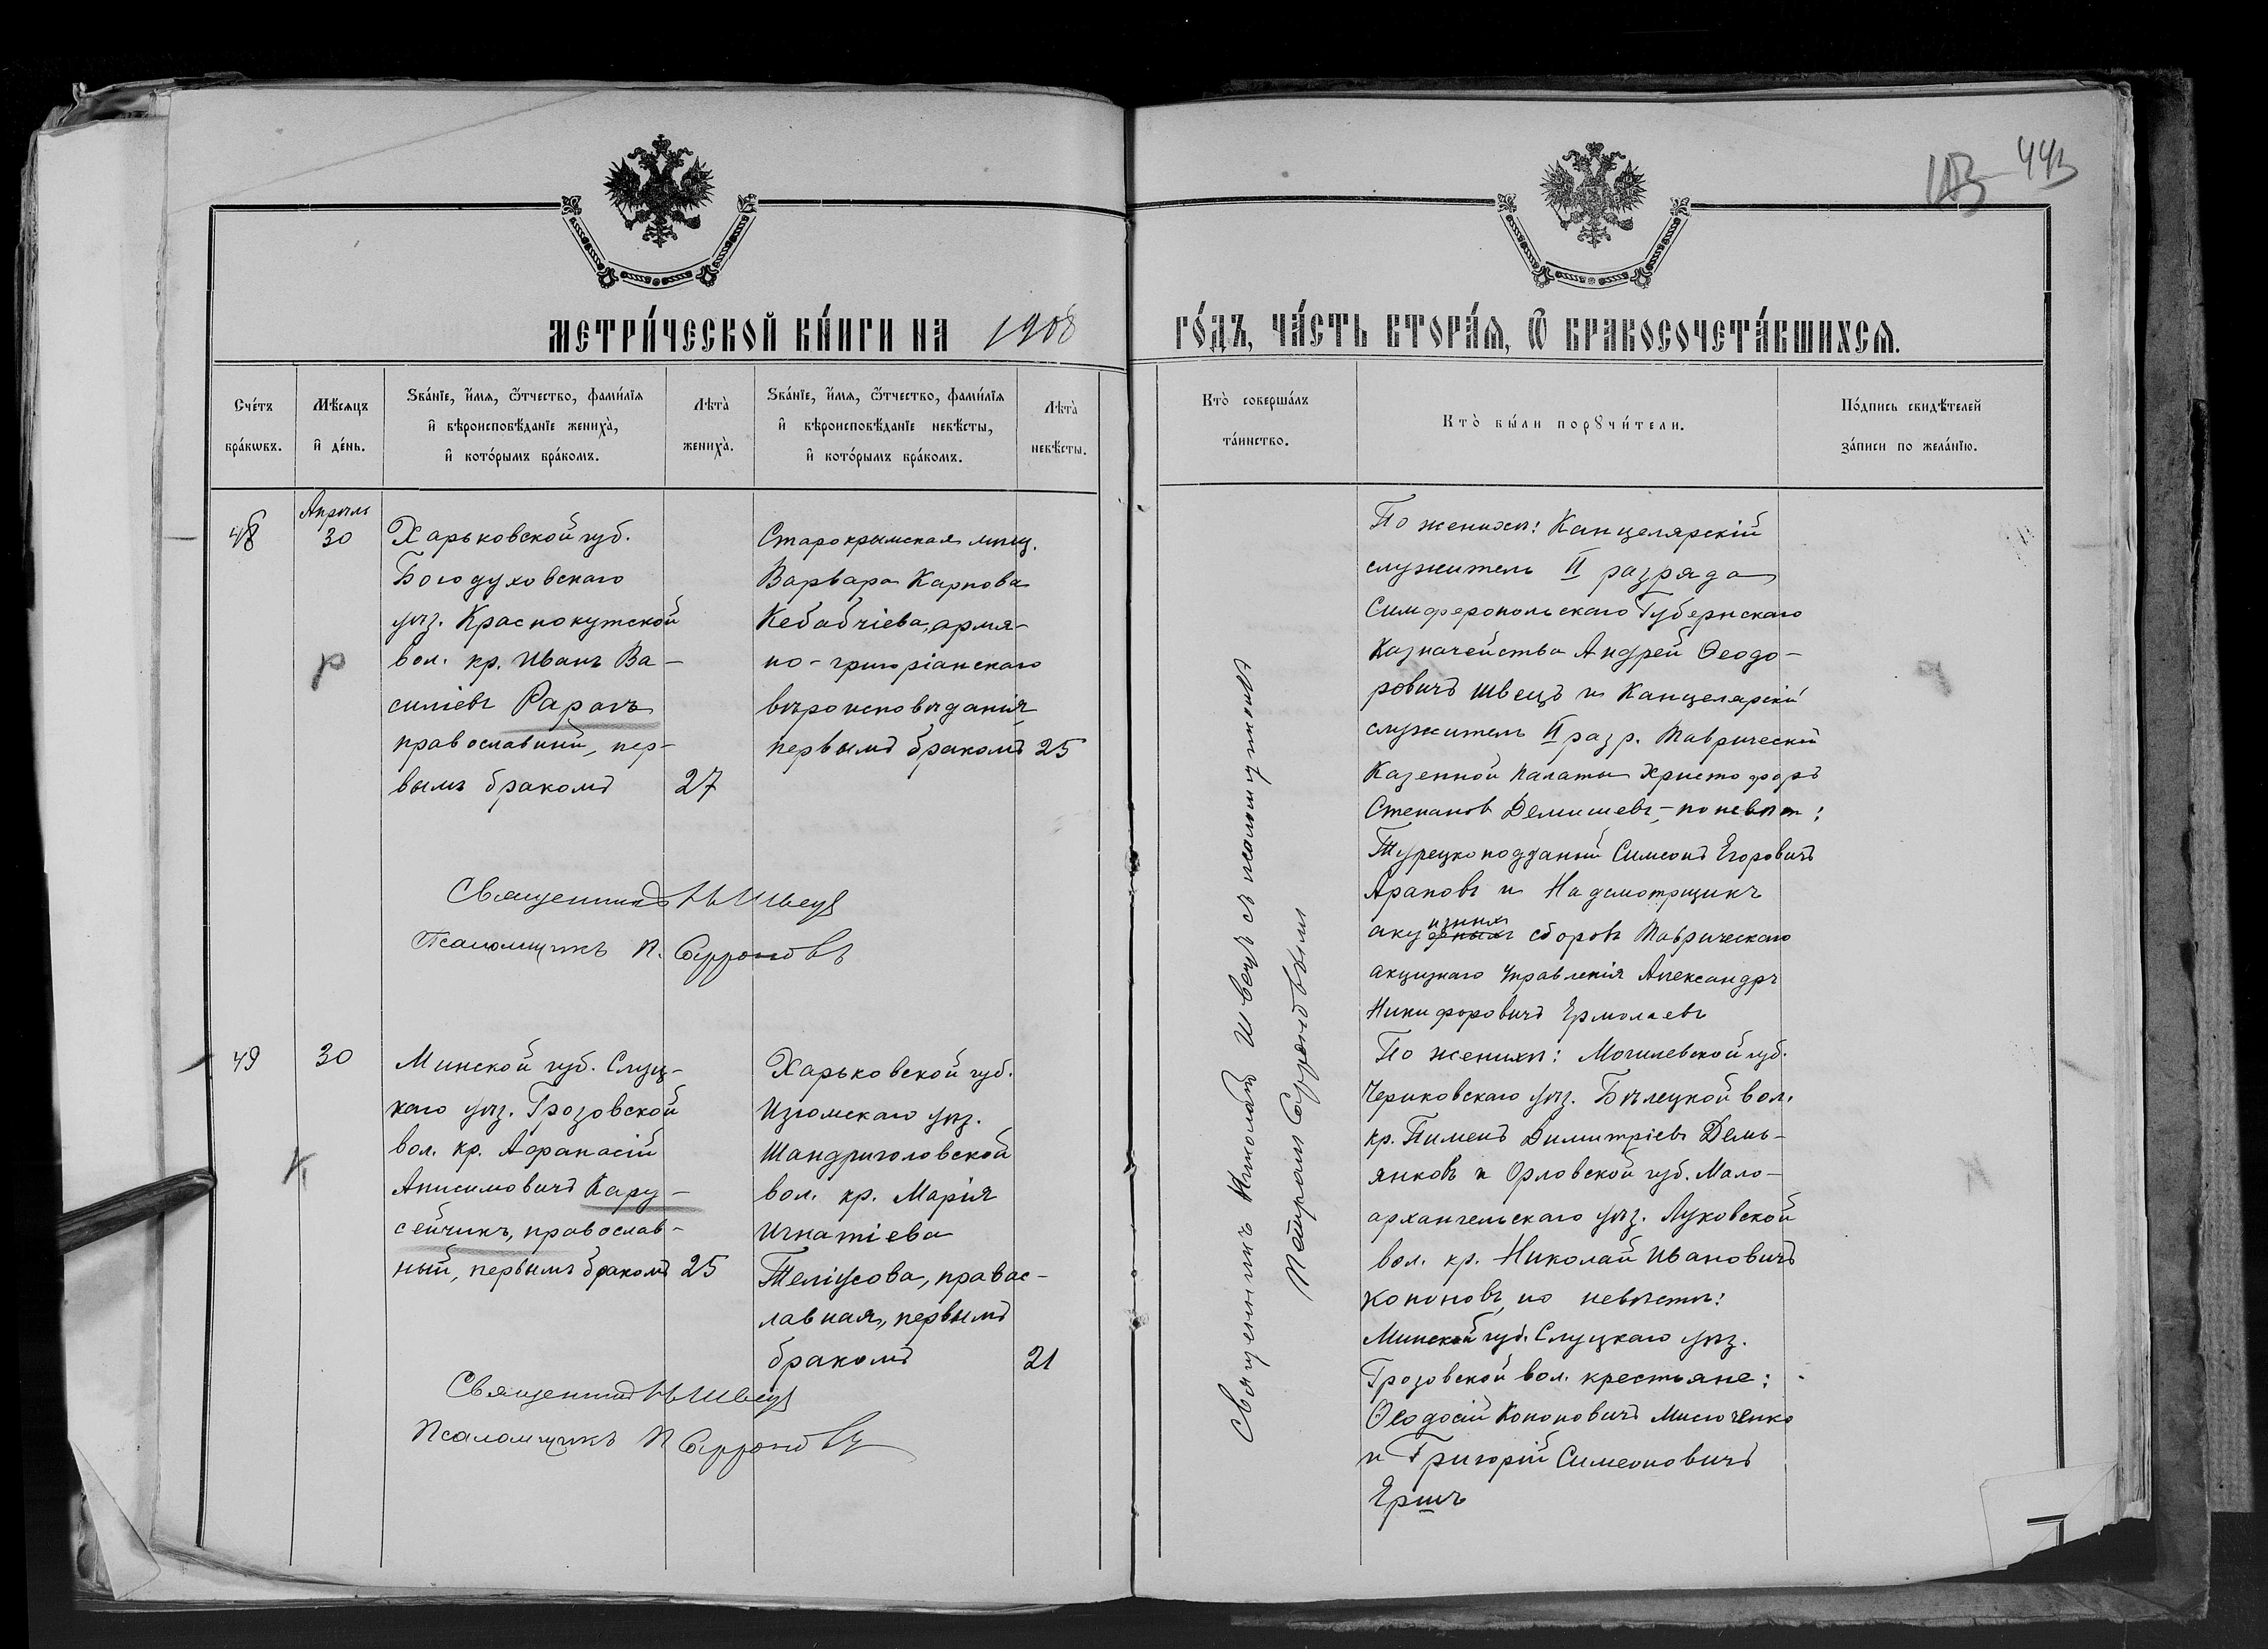 443
МЕТРИ́ЧЕСКОЙ КНИ́ГИ НА 1908 ГО́ДЪ, ЧА́СТЬ ВТОРА́Я, Ѿ БРАКОСОЧЕТА́ВШИХСЯ.
Сче́тъ бра́кѡвъ.
Мѣ́сяцъ и҆ де́нь.
Ѕва́нїе, и҆́мя, ѻ҆́тчество, фами́лїя
и҆ вѣроисповѣ́данїе жениха̀,
и҆ кото́рымъ бра́комъ.
Лѣта̀ жениха̀.
Ѕва́нїе, и҆́мя, ѻ҆́тчество, фами́лїя
и҆ вѣроисповѣ́данїе невѣ́сты,
и҆ кото́рымъ бра́комъ.
Лѣта̀ невѣ́сты.
Кто̀ соверша́лъ
та́инство.
Кто̀ бы́ли порꙋчи́тели.
По́дпись свидѣ́телей
за́писи по жела́нїю.
48
Апрѣль
30
Харьковской губ.
Богодуховскаго
уѣз. Краснокутской
вол. кр. Иванъ Ва-
силіевъ Рарогъ
православный, пер-
вымъ бракомъ 27
Старокрымская мѣщ.
Варвара Карпова
Кебабчіева, армя-
но-григоріанскаго
вѣроисповѣданія,
первымъ бракомъ 25
Священникъ Н Швецъ
Псаломщикъ П. Сафроновъ
р
По женихѣ: Канцелярскій
служитель II разряда
Симферопольскаго Губернскаго
Казначейства Андрей Ѳеодо-
ровичъ Швецъ и Канцелярскій
служитель II разр. Таврической
Казенной Палаты Христофоръ
Степановъ Демишевъ,-по невѣст:
Турецкоподданый Симеонъ Егоровичъ
Араповъ и Надсмотрщикъ
акцизныхъ сборовъ Таврическаго
акцизнаго Управленія Александръ
Никифоровичъ Ермолаевъ
49
30
Минской губ. Слуц-
каго уѣз. Грозовской
вол. кр. Афанасій
Анисимовичъ Кару-
сейчикъ, православ-
ный, первымъ бракомъ 25
Харьковской губ.
Изюмскаго уѣз.
Шандриголовской
вол. кр. Марія
Игнатіева
Теліусова, правос-
лавная, первымъ
бракомъ 21
Священникъ Н Швецъ
Псаломщикъ П Сафроновъ
к
Священникъ Николай Швецъ съ псаломщикомъ
Петромъ Сафроновымъ
По женихѣ: Могилевской губ.
Чериковскаго уѣз. Бѣлецкой вол.
кр. Пименъ Димитріевъ Демь-
янковъ и Орловской губ. Мало-
архангельскаго уѣз. Луковской
вол. кр. Николай Ивановичъ
Кононовъ, по невѣстѣ:
Минской губ. Слуцкаго уѣз.
Грозовской вол. крестьяне:
Ѳеодосій Кононовичъ Мисюченко
и Григорій Симеоновичъ
Ершъ